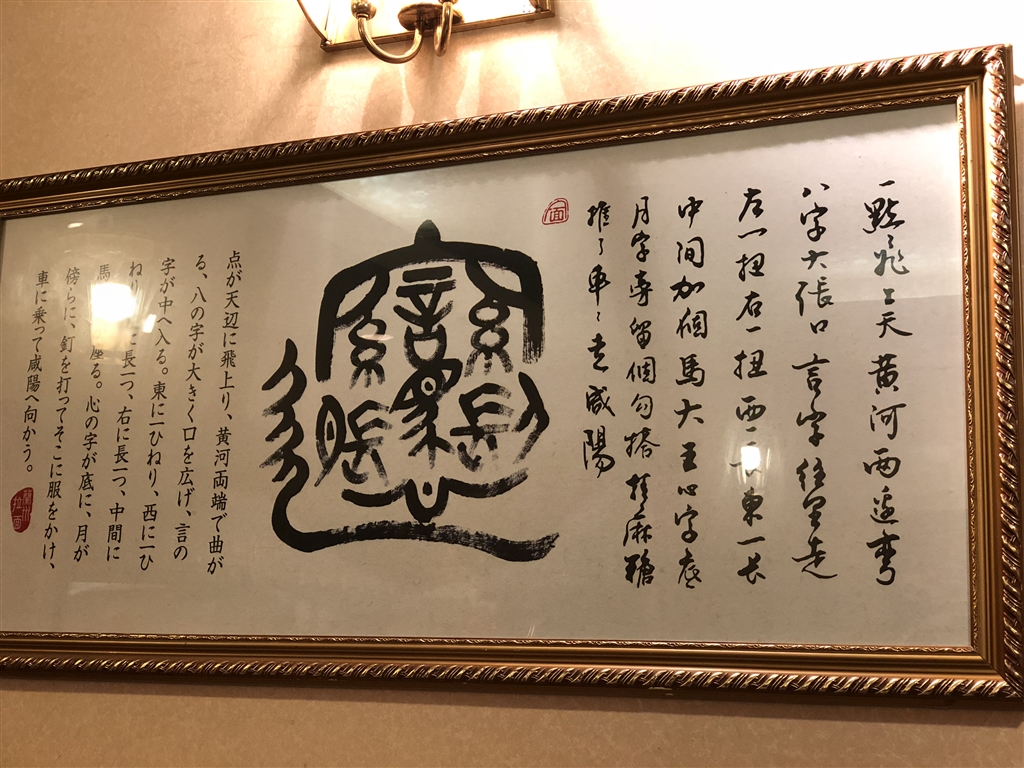 一點飛上天黄河两邊彎
八字大張口言字往里走
左一扭右一扭西一東一长
中间加個馬大王心字底
月字旁留個勾搭挂麻糖
推了車〻走咸陽
面
𰻞
点が天辺に飛上り、黄河両端で曲が
る、八の字が大きく口を広げ、言の
字が中へ入る。東に一ひねり、西に一ひ
ねり に長一つ、右に長一つ、中間に
馬 座る。心の字が底に、月が
傍らに、釘を打ってそこに服をかけ、
車に乗って咸陽へ向かう。
蘭州拉面